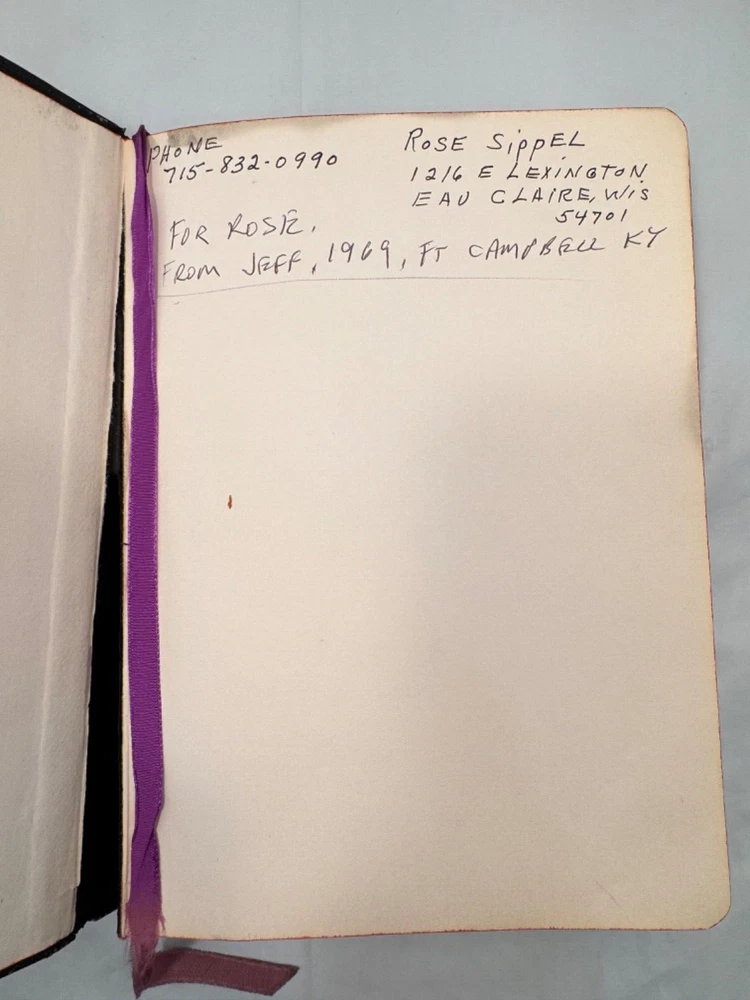 PHONE
715-832-0990
ROSE SIPPEL
1216 E LEXINGTON
EAU CLAIRE, WIS
54701
FOR ROSE,
FROM JEFF, 1969, FT CAMPBELL KY